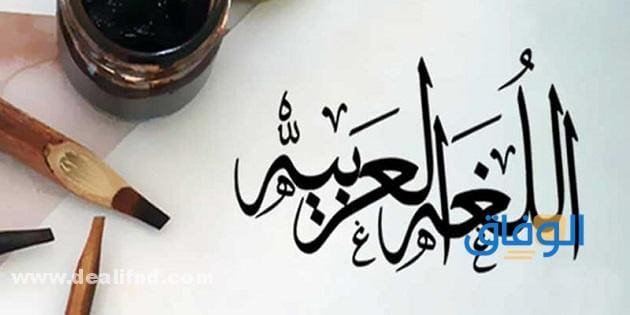 اللُغه العربيه
الوفاق
www.dealifnd.com